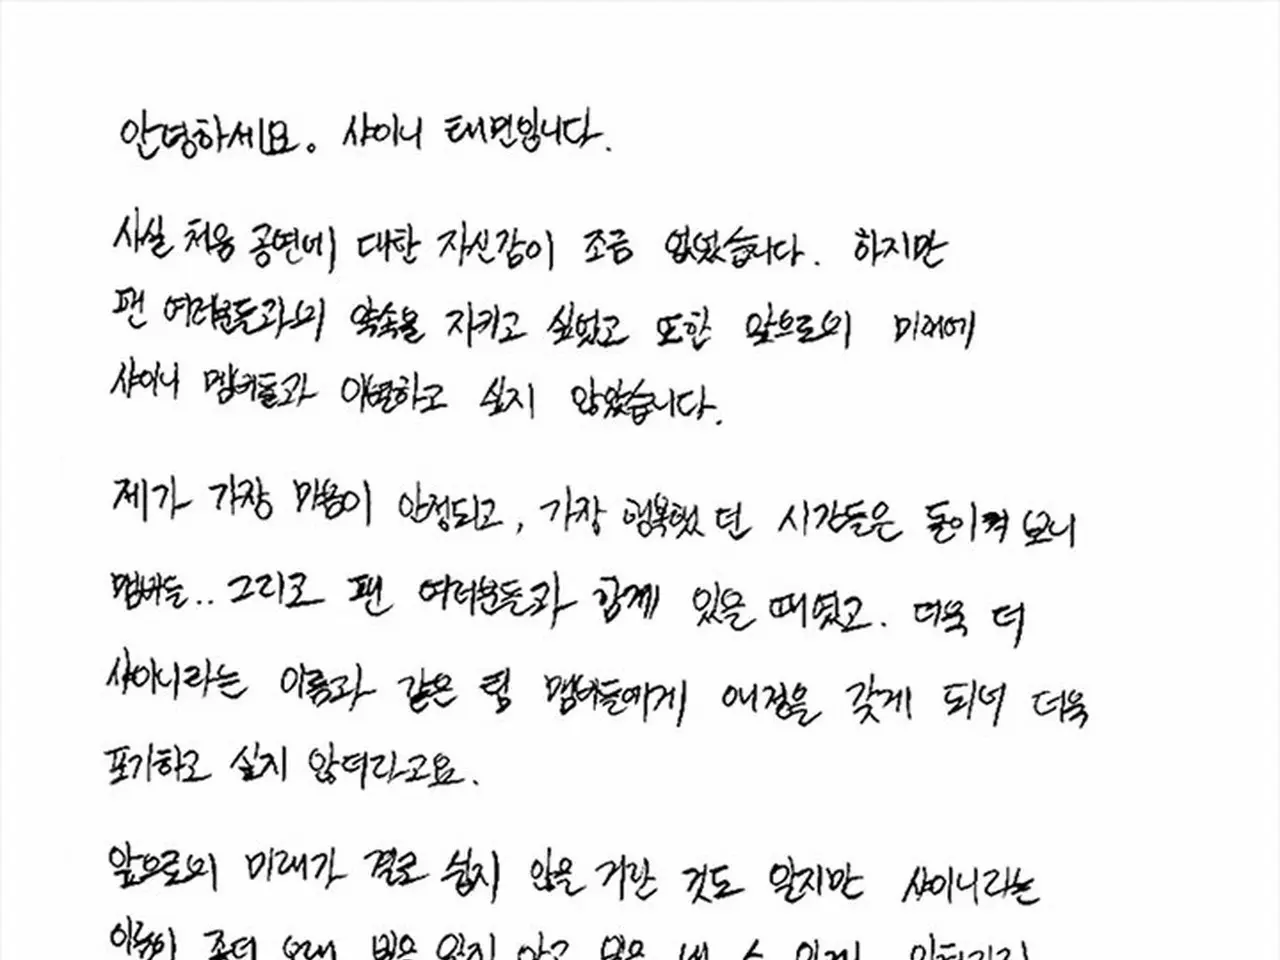 안녕하세요. 샤이니 태민입니다.
사실 처음 공연에 대한 자신감이 조금 없었습니다. 하지만
팬 여러분들과의 약속을 지키고 싶었고 또한 앞으로의 미래에
샤이니 멤버들과 이별하고 싶지 않았습니다.
제가 가장 마음이 안정되고, 가장 행복했던 시간들은 돌이켜 보니
멤버들.. 그리고 팬 여러분들과 함께 있을 때였고. 더욱 더
샤이니라는 이름과 같은 팀 멤버들에게 애정을 갖게 되너 더욱
포기하고 싶지 않더라고요.
앞으로의 미래가 결코 쉽지 않을 거란 것도 알지만 샤이니라는
이름이 좀더 오래 빛을 잃지 않고